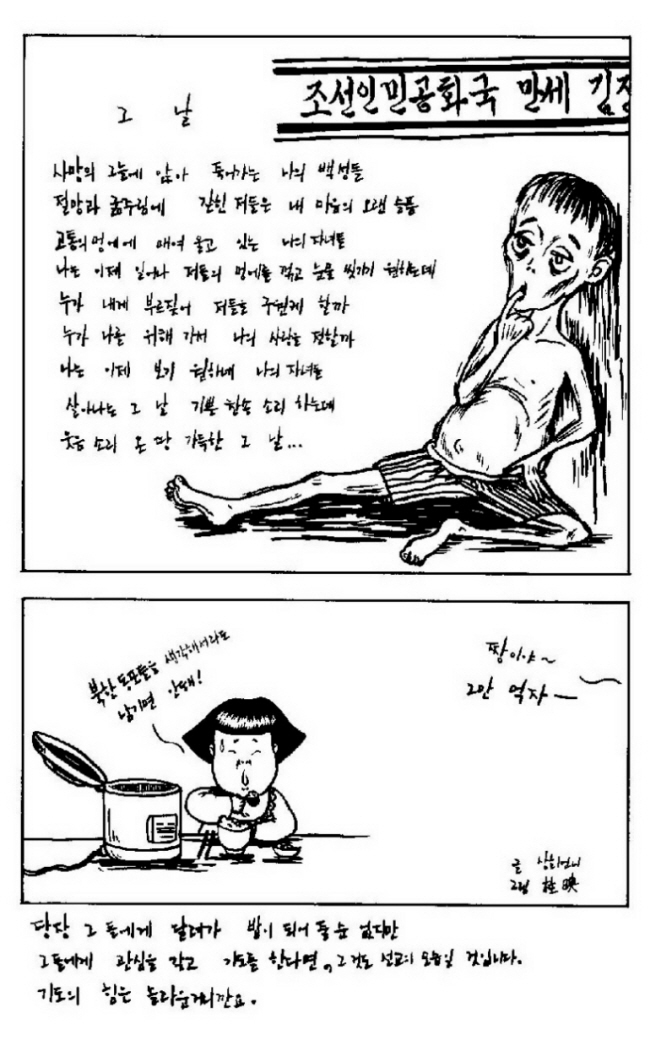 조선인민공화국 만세 김정
그 날
사망의 그늘에 앉아 죽어가는 나의 백성들
절망과 굶주림에 갇힌 저들은 내 마음의 오랜 슬픔
고통의 멍에에 매여 울고 있는 나의 자녀들
나는 이제 일어나 저들의 멍에를 꺾고 눈물 씻기기 원하는데
누가 내게 부르짖어 저들을 구원케 할까
누가 나를 위해 가서 나의 사랑을 전할까
나는 이제 보기 원하네 나의 자녀들
살아나는 그 날 기쁜 찬송 소리 하는데
웃음 소리 온 땅 가득한 그 날...
북한동포들을 생각해서라도
남기면 안돼!
짱이야~
그만 먹자—
글
그림
당장 그들에게 달려가 밥이 되어 줄 순 없지만
그들에게 관심을 갖고 기도를 한다면, 그것도 선교의 모습일 것입니다.
기도의 힘은 놀라운거니깐요.